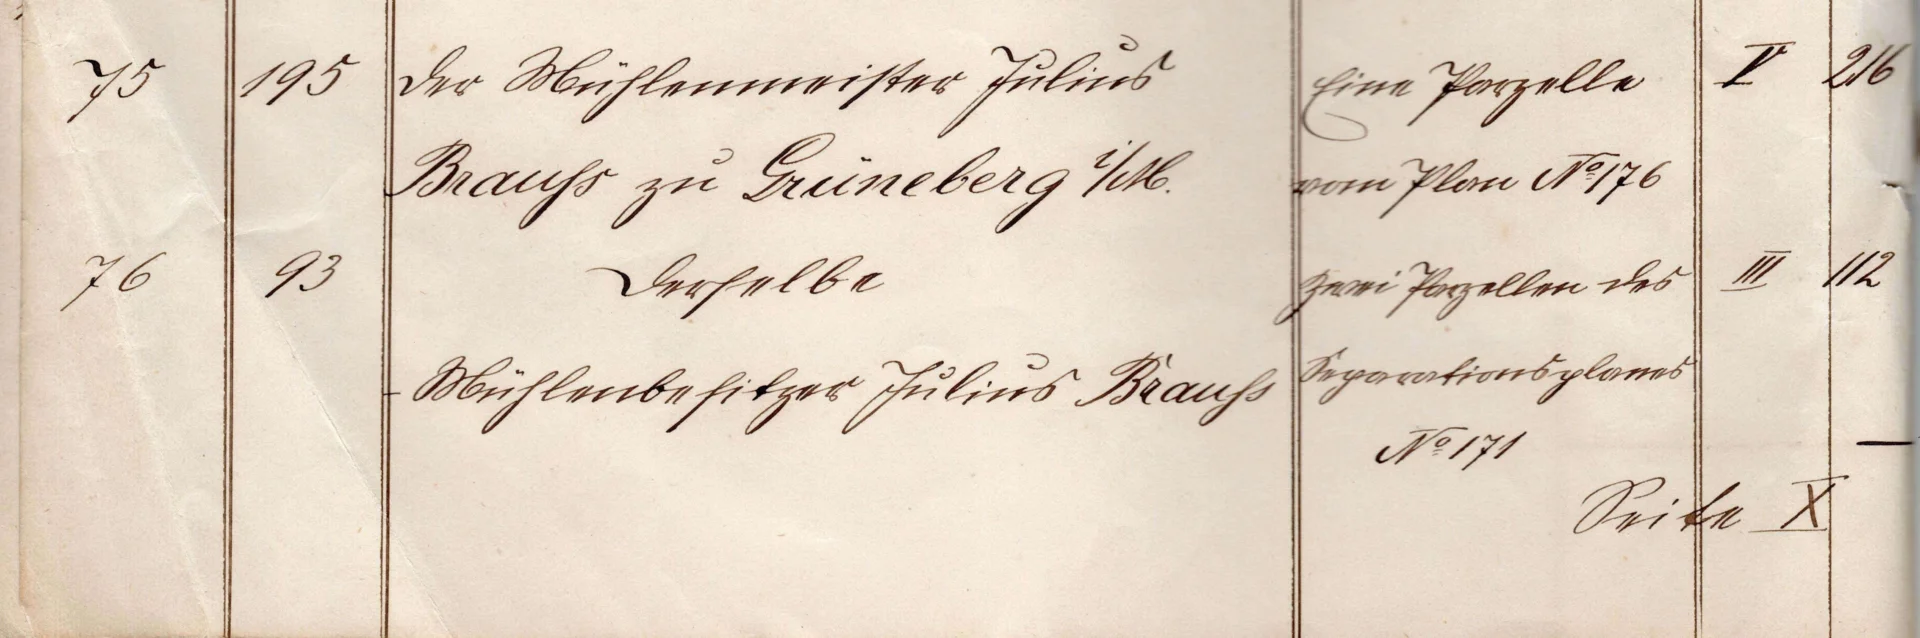 75 195 Der Mühlenmeister Julius Eine Parzelle V 216
Brauß zu Grüneberg i/M. vom Plan No 176
76 93 Derselbe Zwei Parzellen des III 112
- Mühlenbesitzer Julius Brauß Separationsplanes
No 171
Seite X